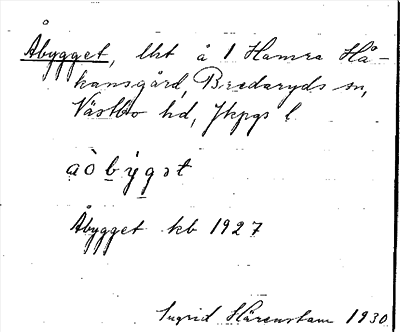 Åbygget, lht å 1 Hamra Hå-
kansgård, Bredaryds sn,
Västbo hd, Jkpgs l
åòbýgət
Åbygget kb 1927
Ingrid Härenstam 1930